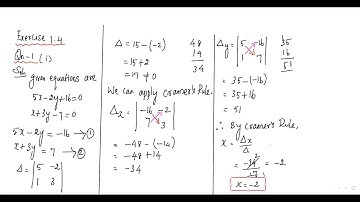 Exercise 1.4
Qn-1 (i)
Soln given equations are
5x-2y+16=0
x+3y-7=0
5x-2y = -16 → ①
x+3y = 7 → ②
Δ = | 5 -2 |
| 1 3 |
Δ = 15-(-2)
= 15+2
= 17 ≠ 0
48
14
34
We can apply Cramer's Rule.
Δx = | -16 -2 |
| 7 3 |
= -48-(-14)
= -48+14
= -34
Δy = | 5 -16 |
| 1 7 |
35
16
51
= 35-(-16)
= 35+16
= 51
∴ By Cramer's Rule,
x = Δx/Δ
= -34/17 = -2
x = -2